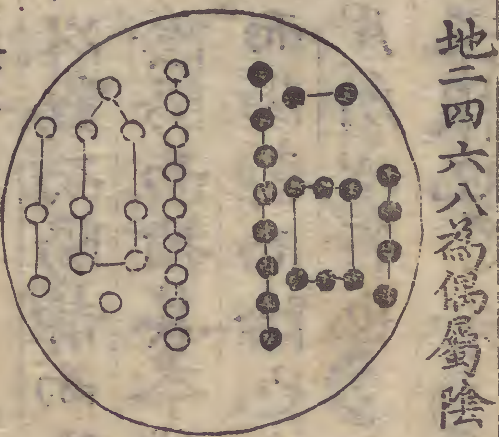 地二四六八為偶屬陰